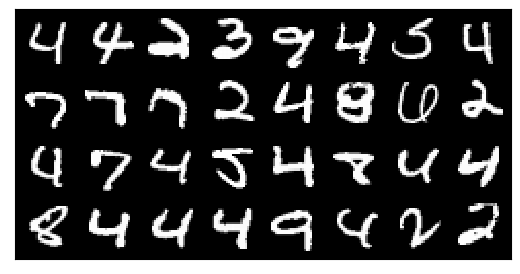 4 4 2 3 9 4 5 4
7 7 7 2 4 8 6 2
4 7 4 5 4 8 4 4
8 4 4 4 9 4 2 2